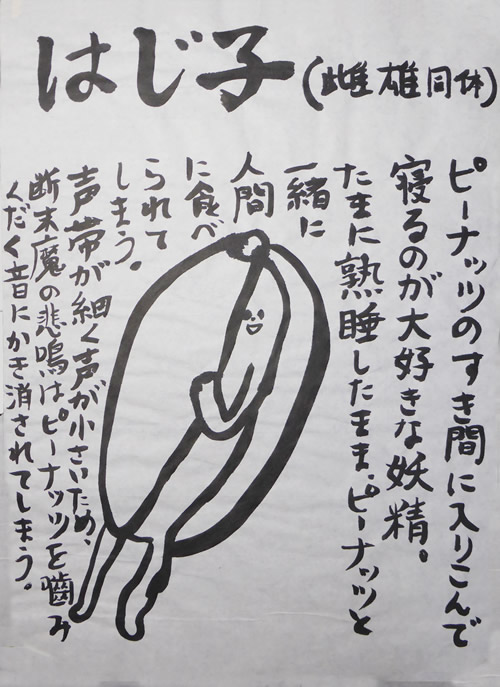 はじ子(雌雄同体)
ピーナッツのすき間に入りこんで
寝るのが大好きな妖精。
たまに熟睡したまま、ピーナッツと
一緒に
人間
に食べ
られて
しまう。
声帯が細く声が小さいため、
断末魔の悲鳴はピーナッツを噛み
くだく音にかき消されてしまう。